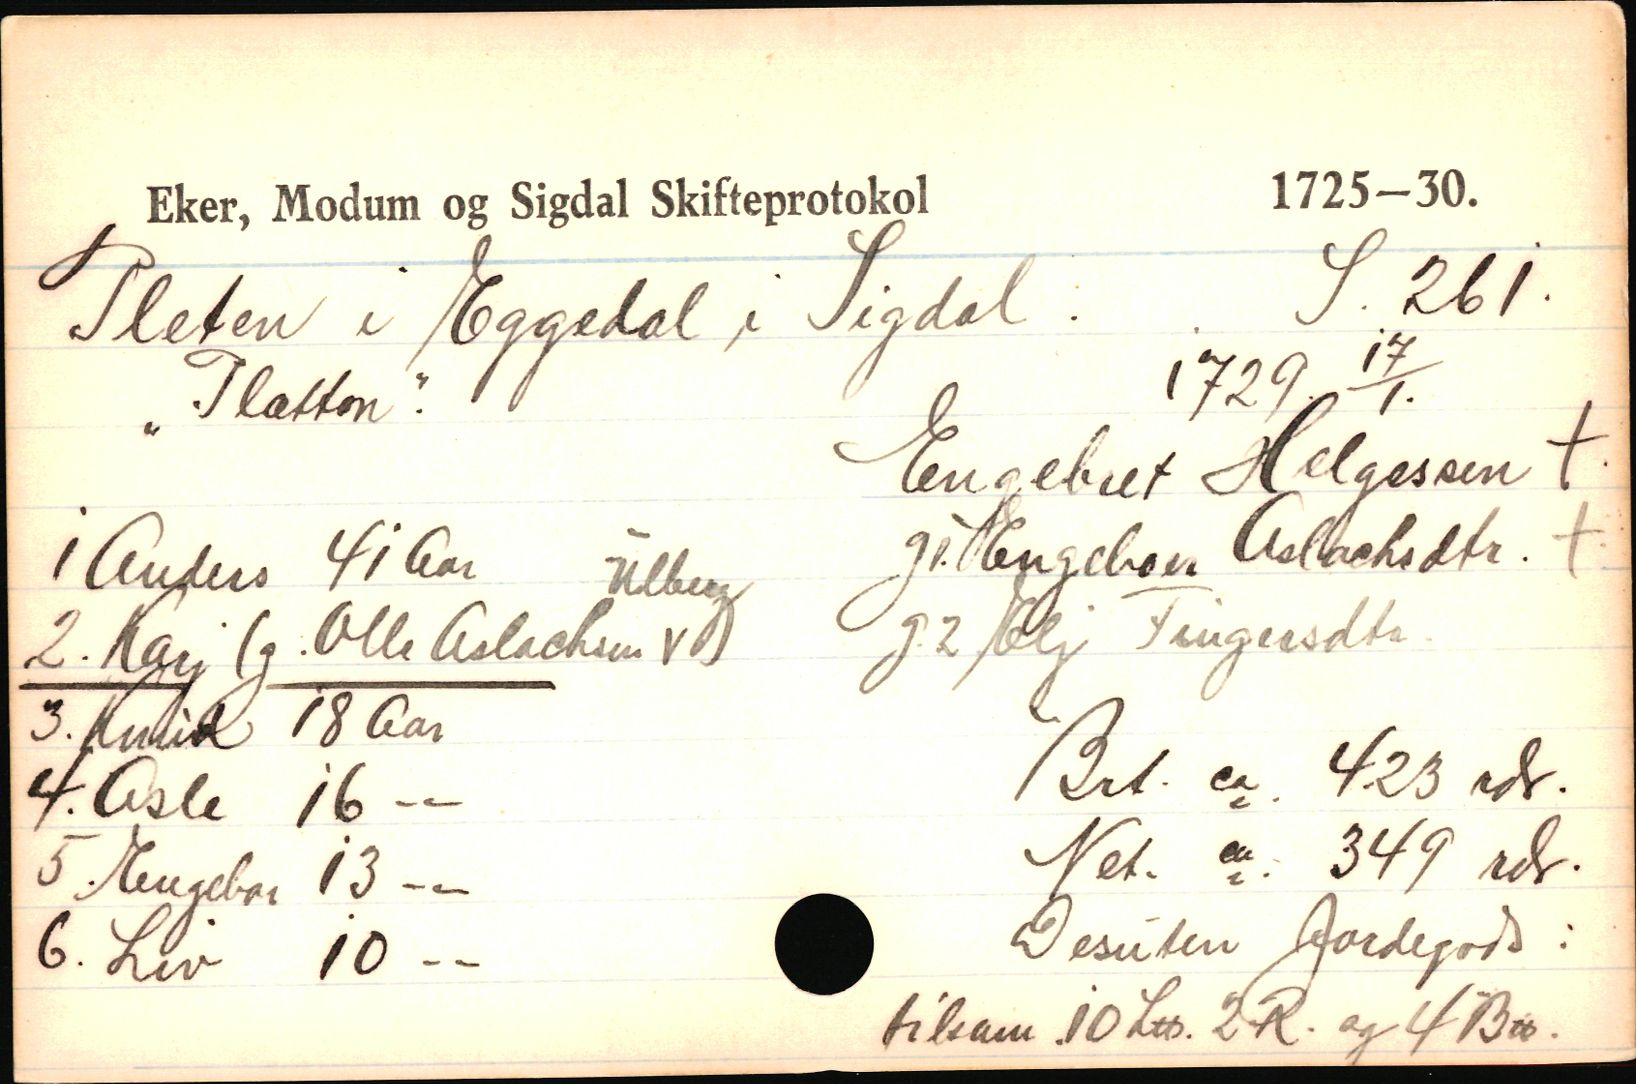 Eker, Modum og Sigdal Skifteprotokol 1725–30.
Pleten i Eggedal i Sigdal. S. 261.
"Platton". 1729. 17/1.
Engebret Helgessen †.
1 Anders 41 Aar g1. Engebor Aslachsdtr. †.
Ulberg
2. Karj (g. Olle Aslachsen g. 2 Elj Fingersdtr.
3. Knud 18 Aar
4. Asle 16 -- Brt. ca. 423 rdr.
5. Engebor 13 -- Net. ca. 349 rdr.
6. Liv 10 -- Desuten Jordegods:
tilsam. 10 L℔. 2 R. og 4 B℔.